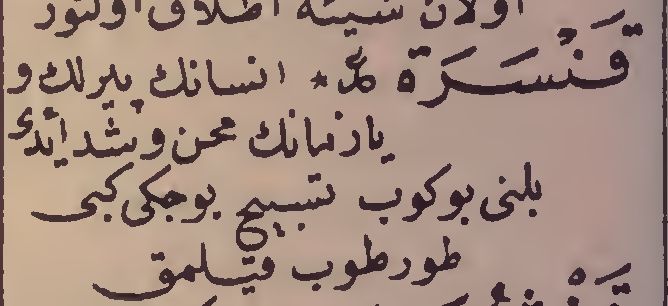 اولان شيئه اطلاق اولنور
قَنْسَرَة * انسانك پيرلك و
يا زمانك محن و شدائدى
بلنى بوكوب تسبيح بوجكى كبى
طورطوب قيلمق